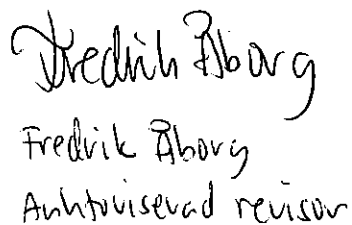 Fredrik Åborg
Fredrik Åborg
Auktoriserad revisor